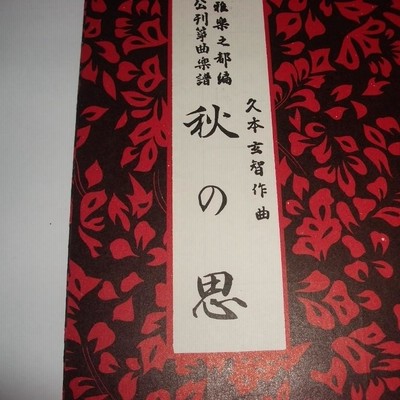 雅楽之都編
公刊箏曲楽譜
久本玄智作曲
秋の思